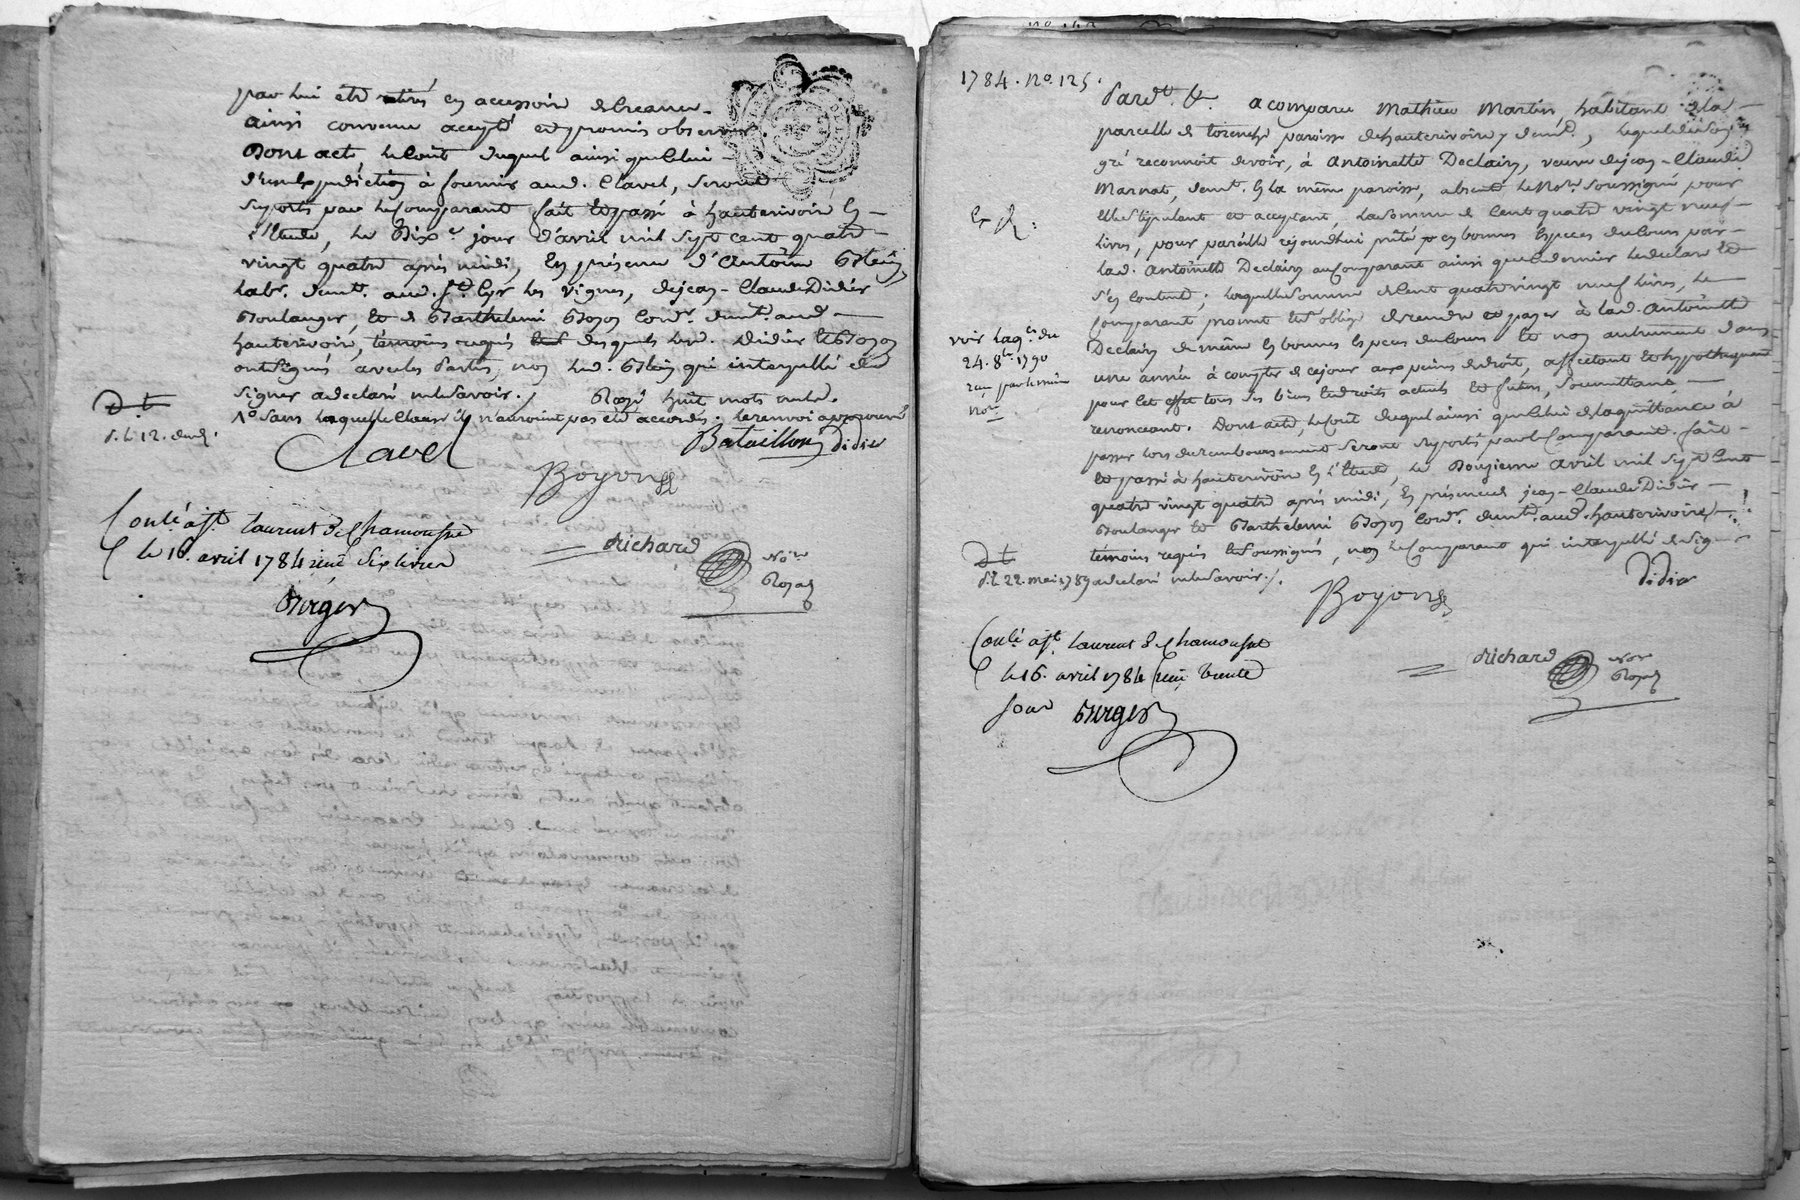 par lui etre retirés en accessoire de creance
ainsi convenu accepté et promis observer
Dont acte, le cout duquel ainsi que celui
d'une expedition à fournir aud. Clavel, seront
suportés par le comparant fait et passé à hauterivoire en
l'etude, le Dix.e jour d'avril mil sept cent quatre
vingt quatre après midi, En présence d'Antoine Blein
labr. demt. aud. St. Cyr les vignes, de jean-Claude Didier
Boulanger, et de Barthelemi Boyon cordr. demt. aud.
hauterivoire, témoins requis desquels led. Didier et Boyon
ont signés avec les parties, non led. Blein qui interpellé de
signer a declaré ne le savoir. Rayé huit mots nuls.
1° sans laquelle clause ils n'auroient pas été accordés. le renvoi approuvé
D. t
d. l. 12. dud.
Clavel
Bataillon
Didier
Boyon
Conlé. a St. Laurent de Chamousset
le 16. avril 1784 reçu Six livres
Richard
Nore
Royal
Burger
1784. No. 125.
Pardt. &. a comparu Mathieu Martin, habitant de la
parcelle de torenche paroisse de hauterivoire y demt., lequel de son
gré reconnoit devoir, à Antoinette Declairy, veuve de jean-Claude
Marnat, demt. en la même paroisse, absente le Nore. soussigné pour
Elle stipulant et acceptant, la somme de Cent quatre vingt neuf
livres, pour pareille cejourdhui prêtée en bonnes Especes du cours par
lad. Antoinette Declairy au comparant ainsi que ce dernier le declare et
s'en contente; laquelle somme de Cent quatre vingt neuf livres, le
comparant promet et s'oblige de rendre et payer à lad. Antoinette
Declairy de même en bonnes Especes du cours et non autrement dans
une année à compter de cejour aux peines de droit, affectant et hypothequant
pour cet effet tous ses biens et droits actuels et futurs, soumettant
renonceant. Dont acte, le cout duquel ainsi que celui de la quittance à
passer lors du remboursement seront suportés par le Comparant. fait
et passé à hauterivoire en l'Etude, le Douzieme avril mil sept Cent
quatre vingt quatre après midi, En présence de jean-Claude Didier
Boulanger et Barthelemi Boyon Cordr. demt. aud. hauterivoire
témoins requis et soussignés, non le comparant qui interpellé de signer
a declaré ne le savoir.
G R:
voir la qce. du
24. 8bre. 1790
reçue par le même
Nore
D t
d. l. 22. mai 1789
Didier
Boyon
Conlé. a St. Laurent de Chamousset
le 16. avril 1784 reçu trente
sous Burger
Richard
Nore
Royal